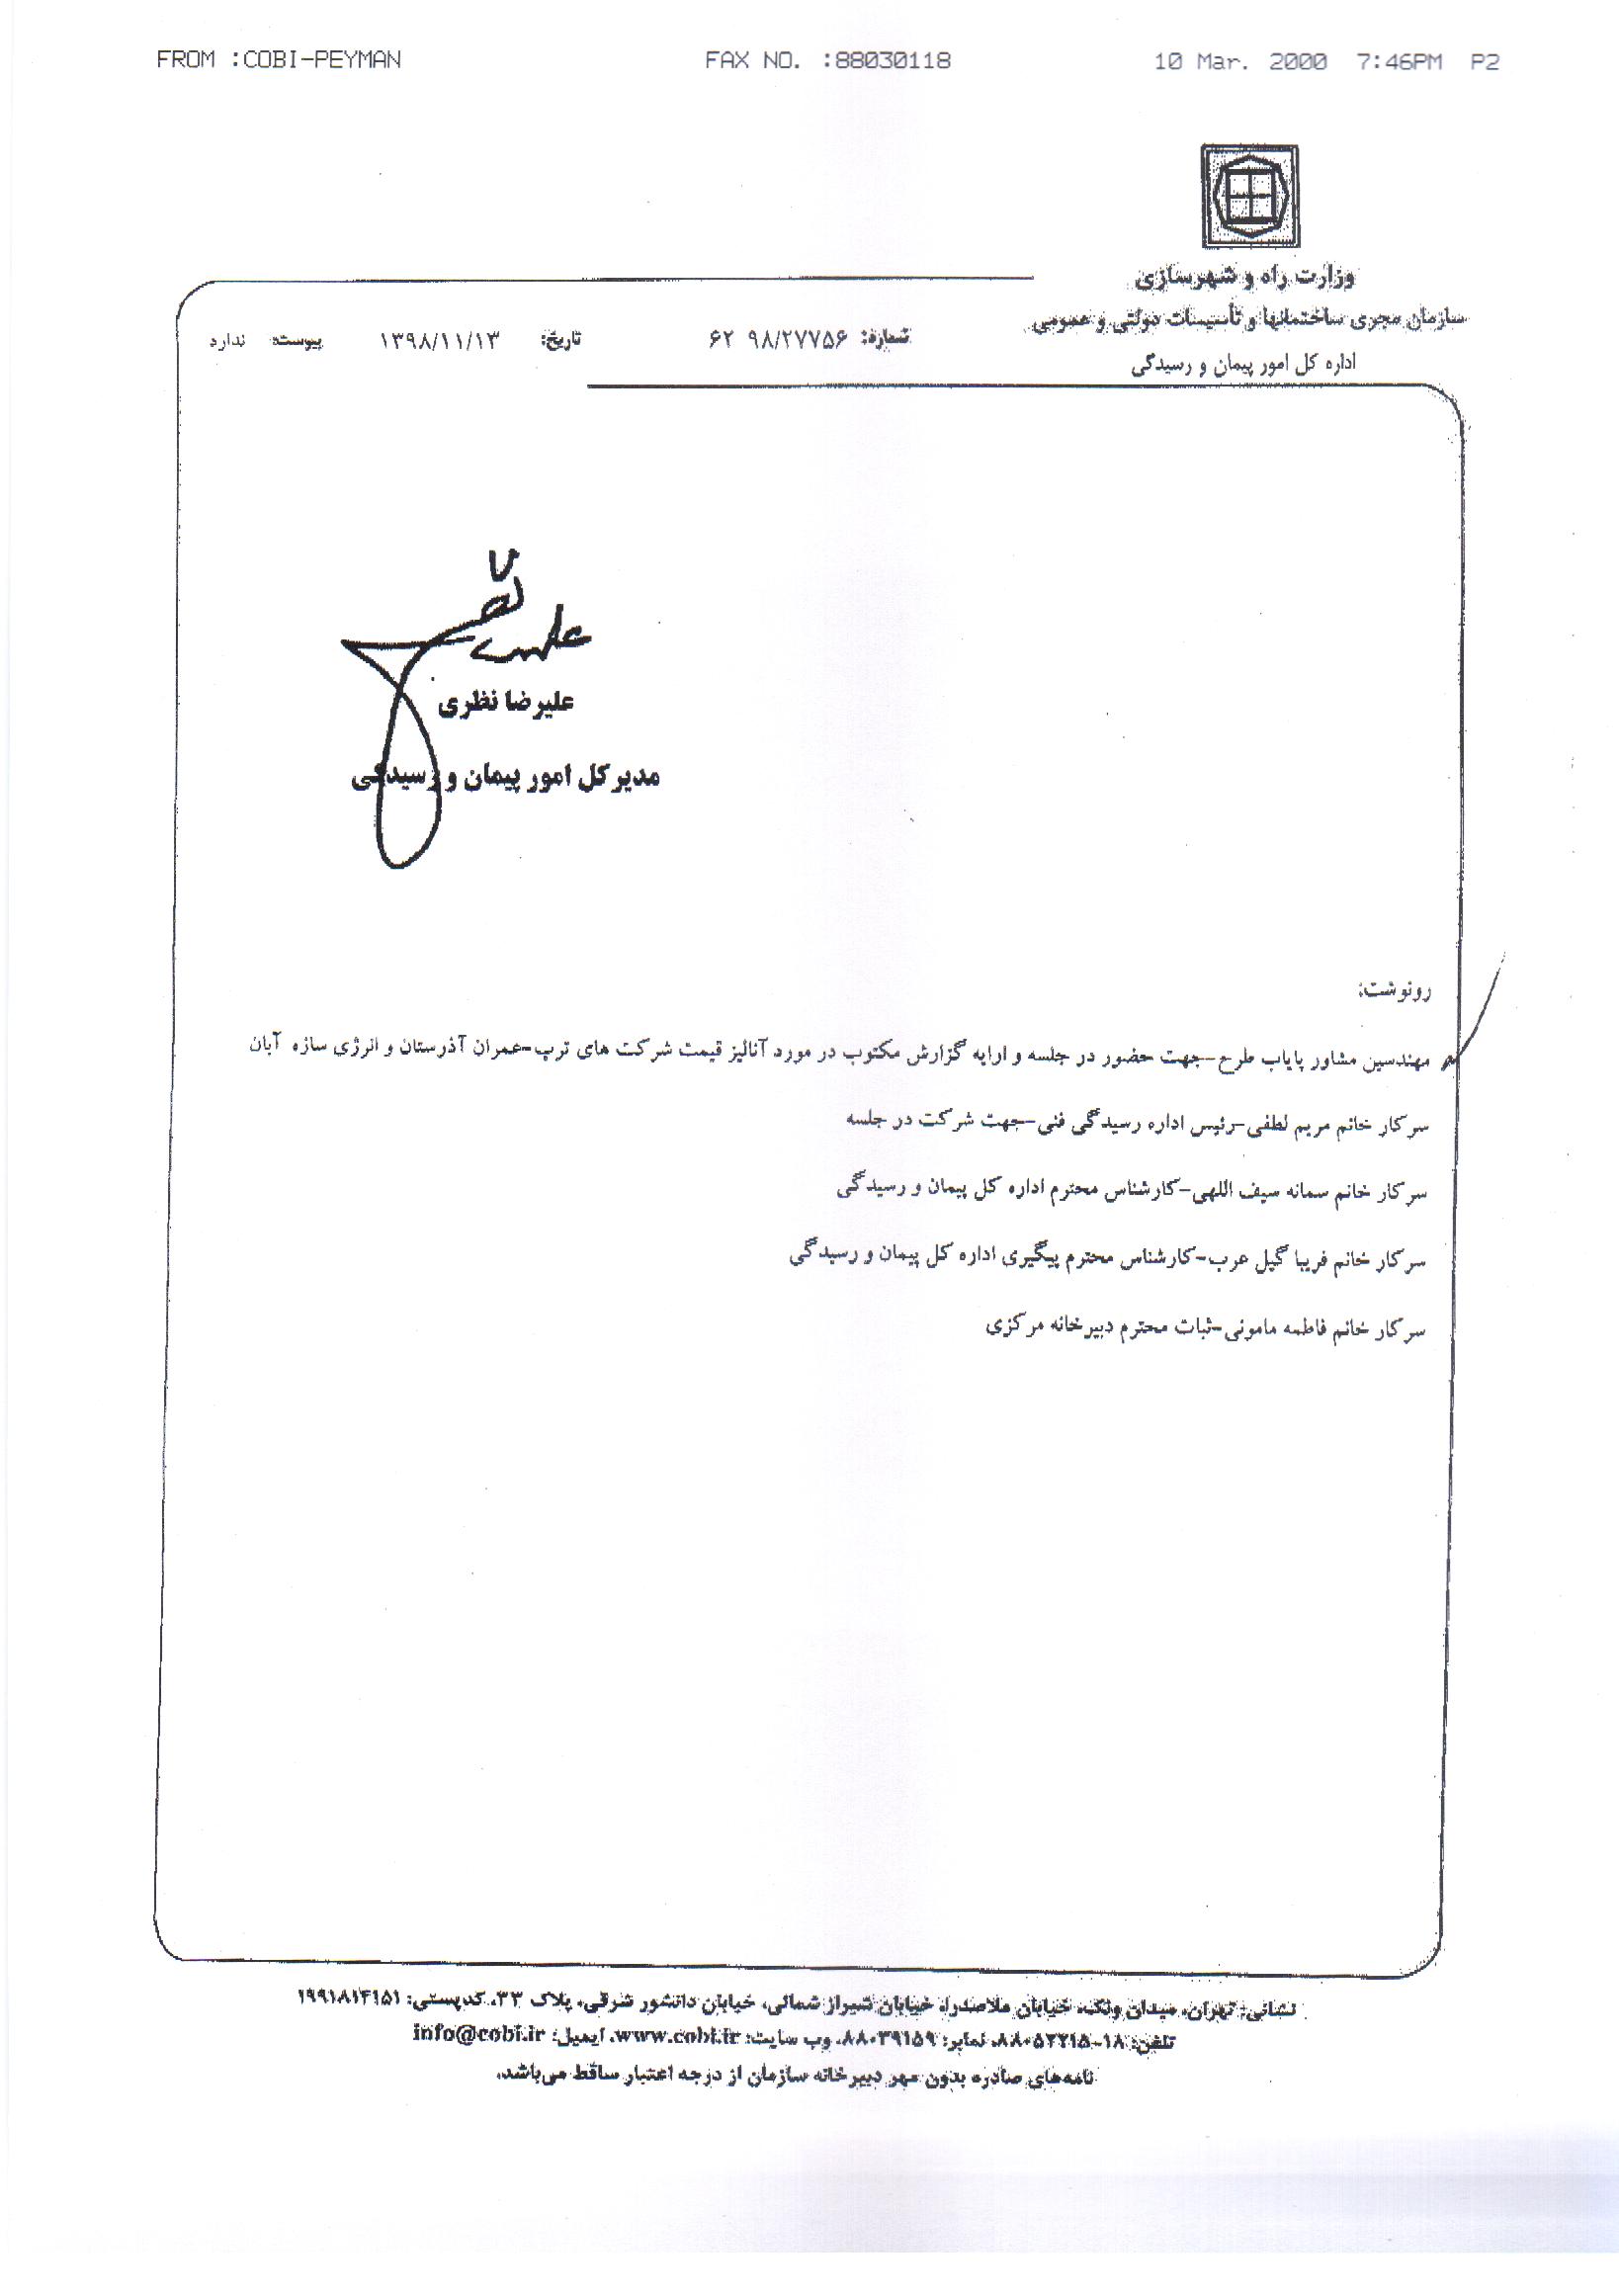 FROM :COBI-PEYMAN FAX NO. :88030118 10 Mar. 2000 7:46PM P2
وزارت راه و شهرسازی
سازمان مجری ساختمانها و تأسیسات دولتی و عمومی
اداره کل امور پیمان و رسیدگی
شماره: ۹۸/۲۷۷۵۶ ۶۲ تاریخ: ۱۳۹۸/۱۱/۱۳ پیوست: ندارد
علیرضا نظری
مدیر کل امور پیمان و رسیدگی
رونوشت:
مهندسین مشاور پایاب طرح-جهت حضور در جلسه و ارایه گزارش مکتوب در مورد آنالیز قیمت شرکت های ترب-عمران آذرستان و انرژی سازه آبان
سرکار خانم مریم لطفی-رئیس اداره رسیدگی فنی-جهت شرکت در جلسه
سرکار خانم سمانه سیف اللهی-کارشناس محترم اداره کل پیمان و رسیدگی
سرکار خانم فریبا گیل عرب-کارشناس محترم پیگیری اداره کل پیمان و رسیدگی
سرکار خانم فاطمه مامونی-ثبات محترم دبیرخانه مرکزی
نشانی: تهران، میدان ونک، خیابان ملاصدرا، خیابان شیراز شمالی، خیابان دانشور شرقی، پلاک ۳۳، کدپستی: ۱۹۹۱۸۱۴۱۵۱
تلفن: ۱۸-۸۸۰۵۲۲۱۵، نمابر: ۸۸۰۳۹۱۵۹، وب سایت: www.cobi.ir، ایمیل: info@cobi.ir
نامه‌های صادره بدون مهر دبیرخانه سازمان از درجه اعتبار ساقط می‌باشد.